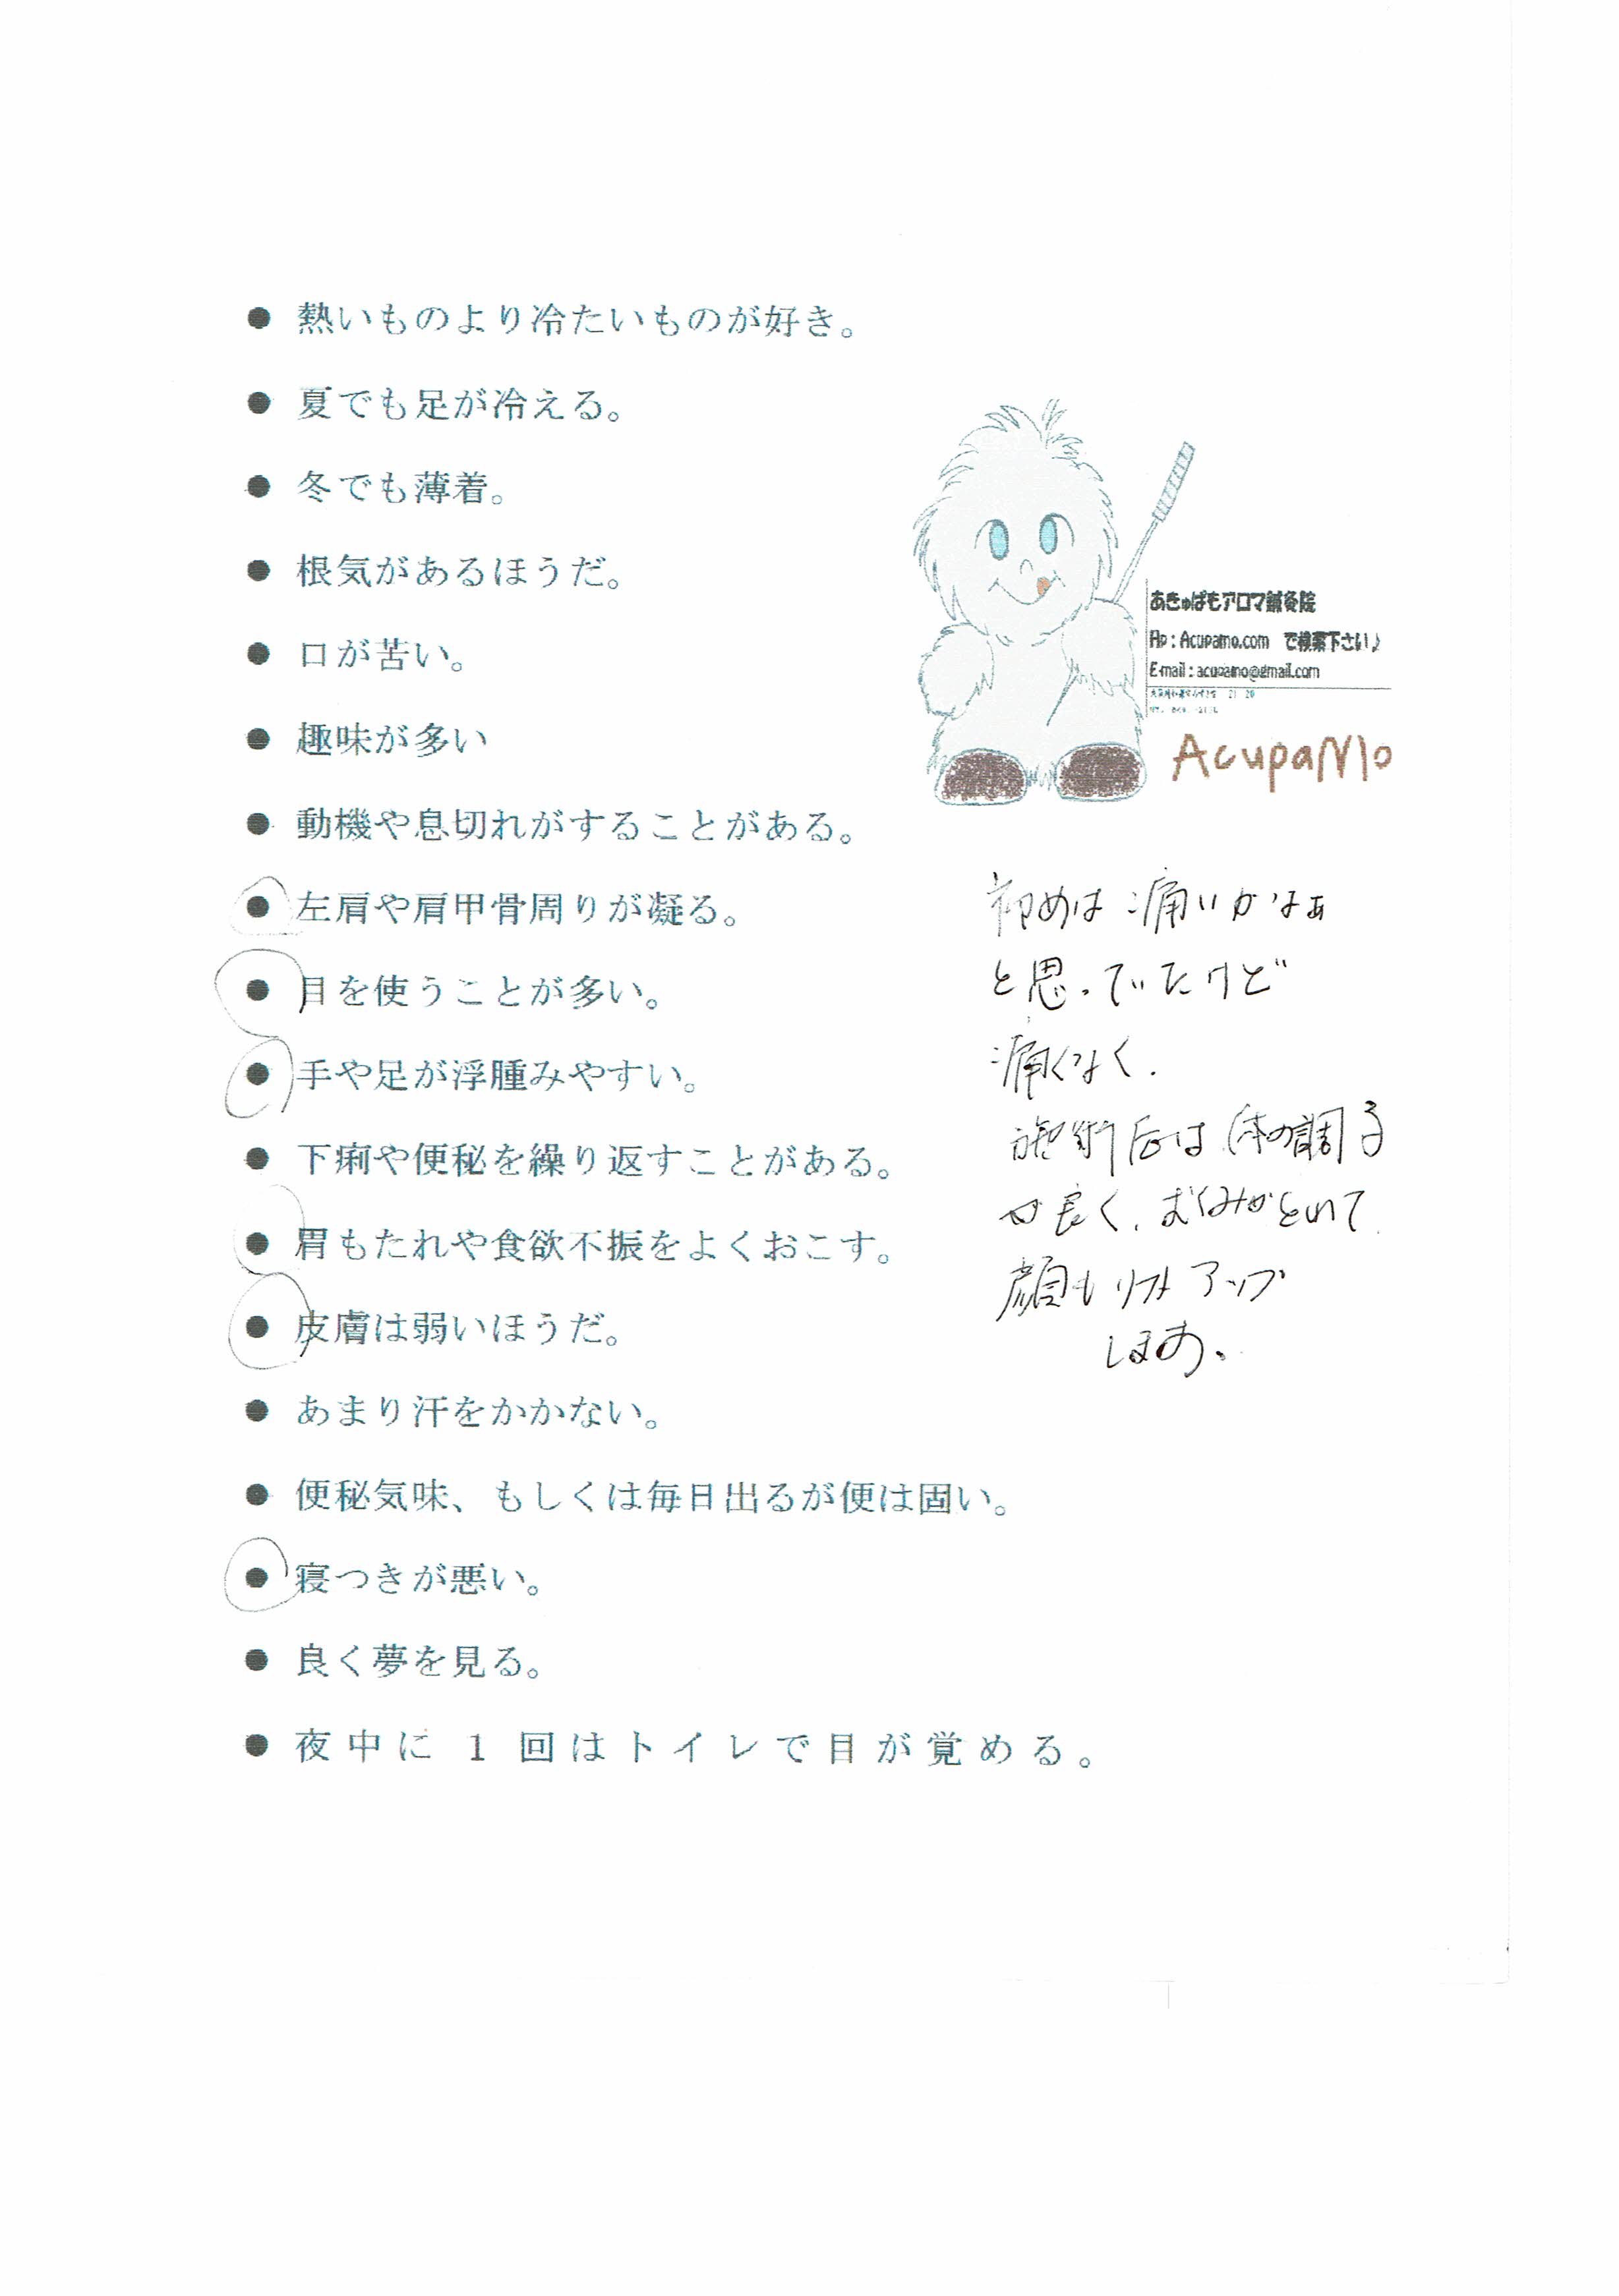 ● 熱いものより冷たいものが好き。
● 夏でも足が冷える。
● 冬でも薄着。
● 根気があるほうだ。
● 口が苦い。
● 趣味が多い
● 動機や息切れがすることがある。
● 左肩や肩甲骨周りが凝る。
● 目を使うことが多い。
● 手や足が浮腫みやすい。
● 下痢や便秘を繰り返すことがある。
● 胃もたれや食欲不振をよくおこす。
● 皮膚は弱いほうだ。
● あまり汗をかかない。
● 便秘気味、もしくは毎日出るが便は固い。
● 寝つきが悪い。
● 良く夢を見る。
● 夜中に 1 回はトイレで目が覚める。
あきゅぱもアロマ鍼灸院
Hp : Acupamo.com で検索下さい♪
E-mail : acupamo@gmail.com
AcupaMo
初めは痛いかなぁ
と思っていたけど
痛くなく、
施術后は体の調子
も良く、むくみがとれて
顔もリフトアップ
します、